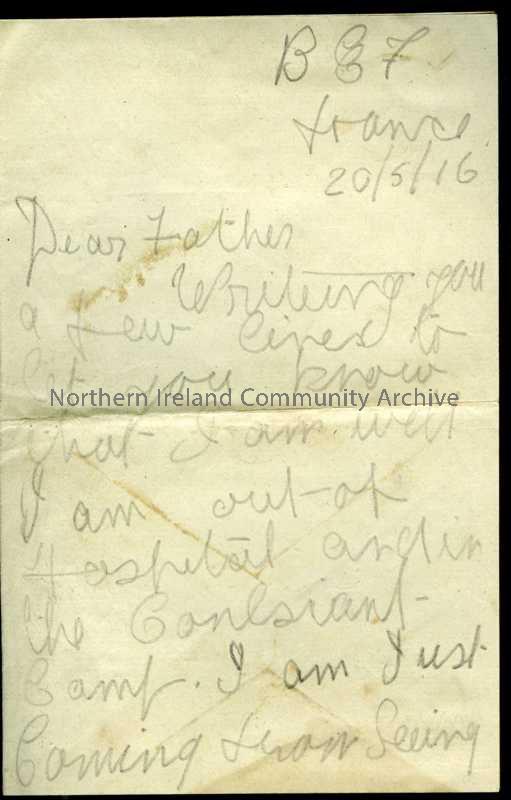 B E F
France
20/5/16
Dear Father
Writeing you
a few lines to
let you know
Northern Ireland Community Archive
that I am well
I am out of
Hospital and in
the Conlsiant
Camp. I am Just
Coming from Seeing